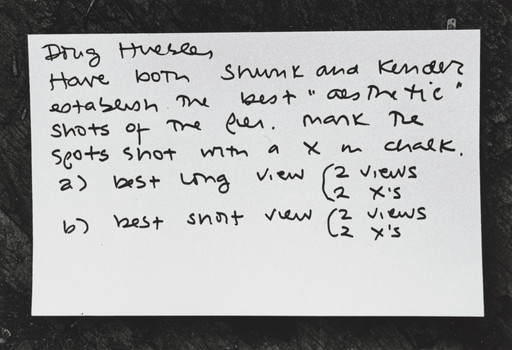 Doug Huebler
Have both Shunk and Kender
establish the best "aesthetic"
shots of the pier. Mark the
spots shot with a X in chalk.
a) best long view (2 views
2 X's
b) best short view (2 views
2 X's